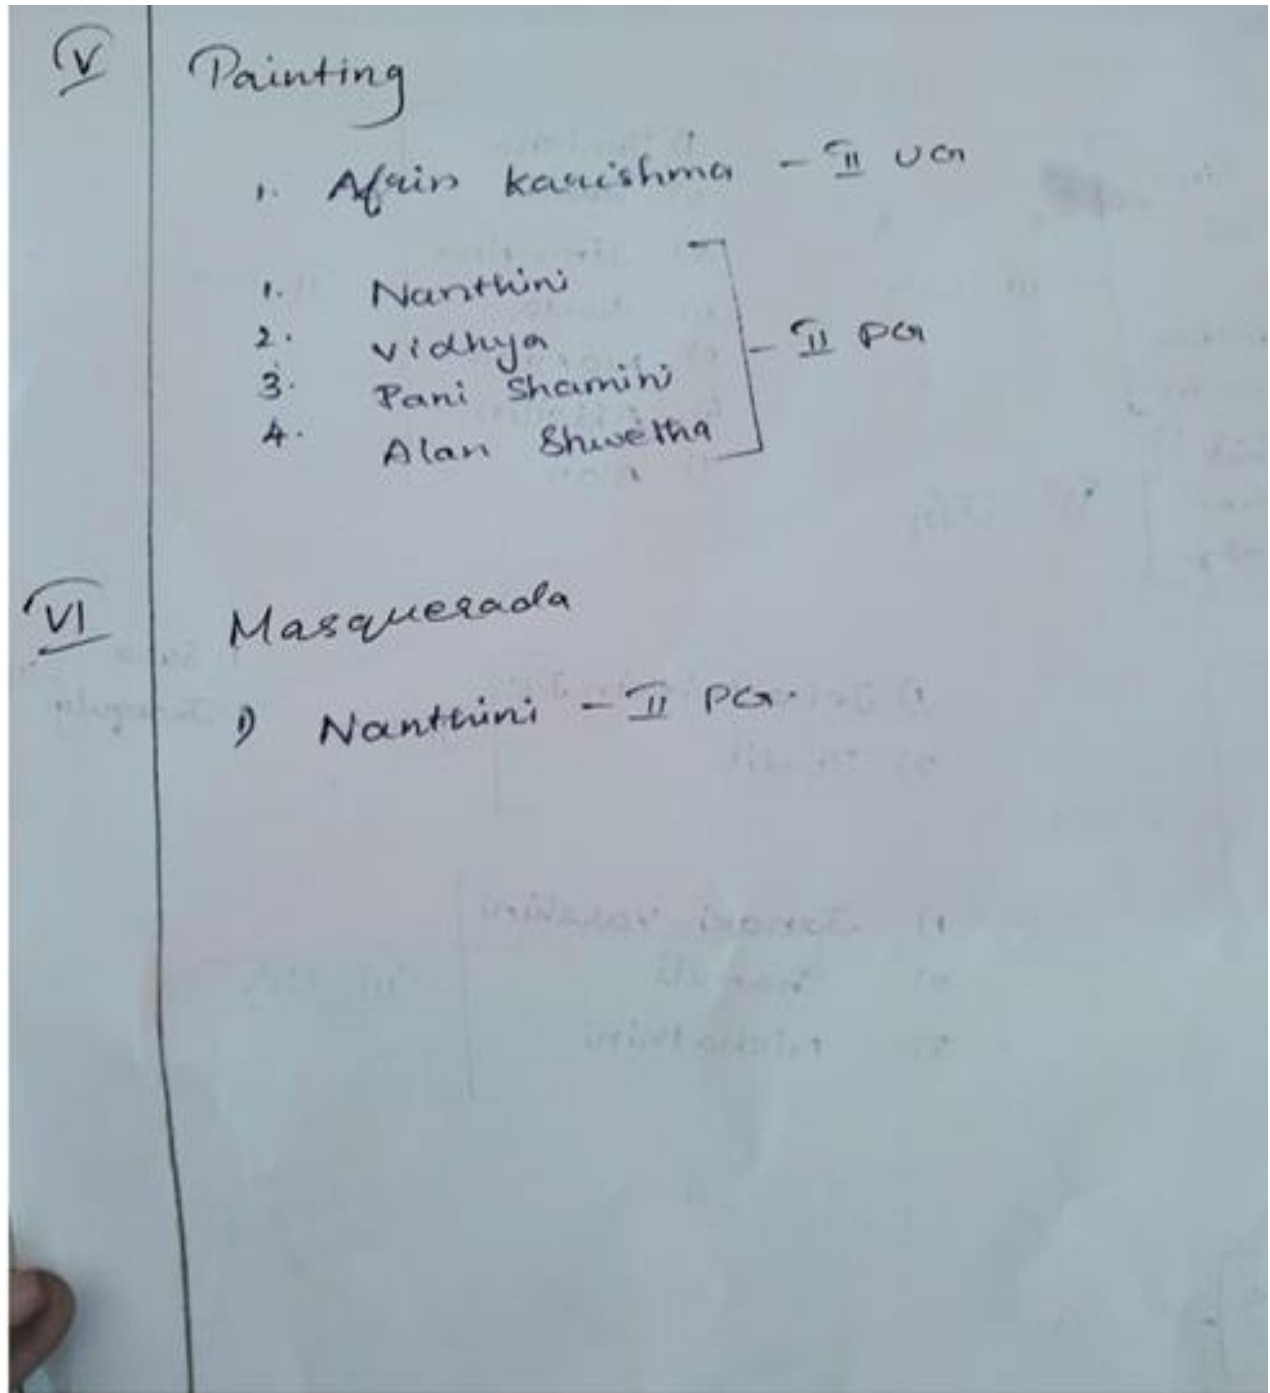 V Painting
1. Afrin Karishma - II UG
1. Nanthini
2. Vidhya
3. Pani Shamini - II PG
4. Alan Shwetha
VI Masquerada
1) Nanthini - II PG.